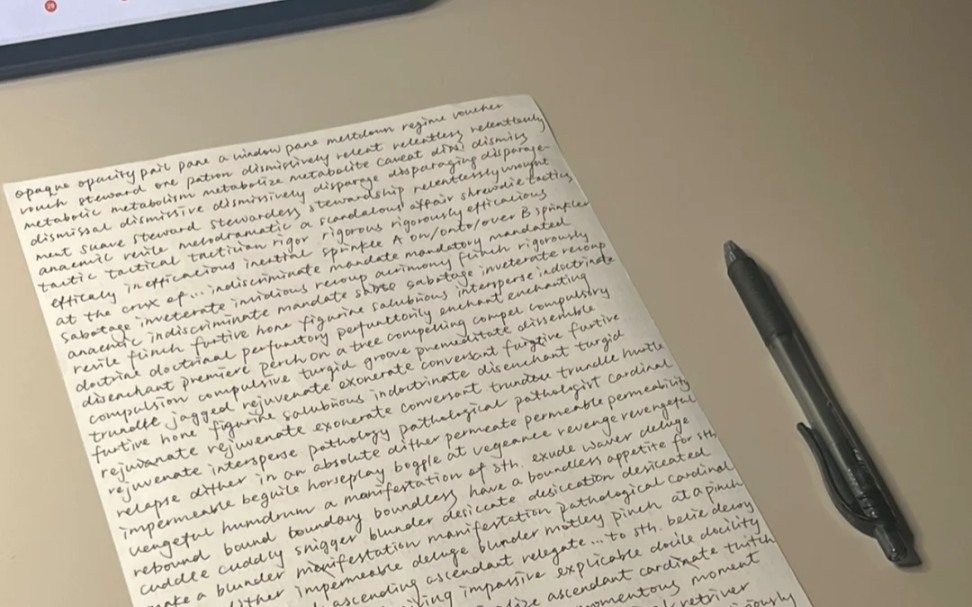 opaque opacity pail pane a window pane meltdown regime voucher
vouch steward one patron dismissively relent relentless relentlessly
metabolic metabolism metabolize metabolite caveat din dismiss
dismissal dismissive dismissively disparage disparaging disparage-
ment suave steward stewardess stewardship relentlessly wrought
anaemic revile melodramatic a scandalous affair shrewd tactics
tactic tactical tactician rigor rigorous rigorously efficacious
efficacy inefficacious inertial sprinkle A on/onto/over B sprinkler
at the crux of... indiscriminate mandate mandatory mandated
sabotage inveterate invidious recoup acrimony flinch rigorously
anaemic indiscriminate mandate sabotage inveterate recoup
revile flinch furtive hone figurine salubrious intersperse indoctrinate
doctrine doctrinal perfunctory perfunctorily enchant enchanting
disenchant premiere perch on a tree compelling compel compulsory
compulsion compulsive turgid groove premeditate dissemble
trundle jagged rejuvenate exonerate conversant furtive furtive
furtive hone figurine salubrious indoctrinate disenchant turgid
rejuvanate rejuvenate exonerate conversant trundle trundle hurtle
rejuvenate interspense pathology pathological pathologist cardinal
relapse dither in an absolute dither permeate permeable permeability
impermeable beguile horseplay boggle at vegeance revenge revengeful
vengeful humdrum a manifestation of sth. exude waver deluge
rebound bound boundary boundless have a boundless appetite for sth.
cuddle cuddly snigger blunder desiccate desiccation desiccated
make a blunder manifestation manifestation pathological cardinal
dither impermeable deluge blunder motley pinch at a pinch
ascending ascendant relegate...to sth. belie decoy
impassive explicable docile docility
ascendant cardinate twitch
momentous moment
retriver